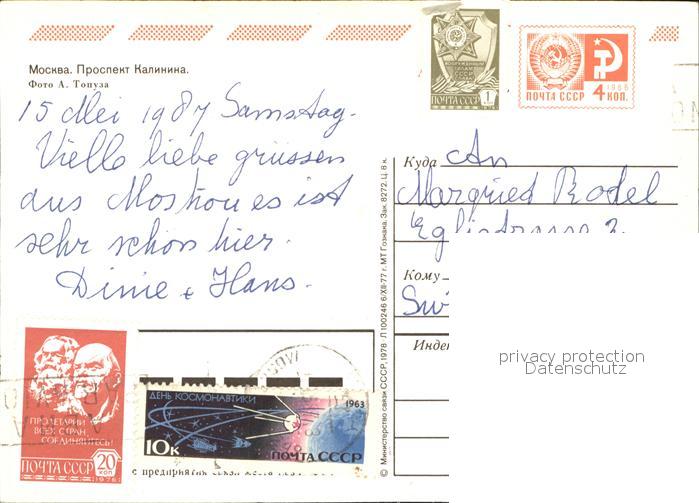 Москва. Проспект Калинина.
Фото А. Топуза
15 Mei 1987 Samstag.
Vielle liebe grüssen
aus Moskou es ist
sehr schön hier.
Dinie + Hans.
1
ПОЧТА СССР
1966
ПОЧТА СССР 4 КОП.
Куда An
Margried Rodel
Eglistrasse 2
Кому
Инде
privacy protection
Datenschutz
© Министерство связи СССР, 1978 Л 100246 6/XII-77 г. МТ Гознака. Зак. 8272. Ц. 8 к.
ПРОЛЕТАРИИ
ВСЕХ СТРАН,
СОЕДИНЯЙТЕСЬ!
ПОЧТА СССР 20 КОП
1976
ДЕНЬ КОСМОНАВТИКИ 1963
10К ПОЧТА СССР
с предприятия связи места